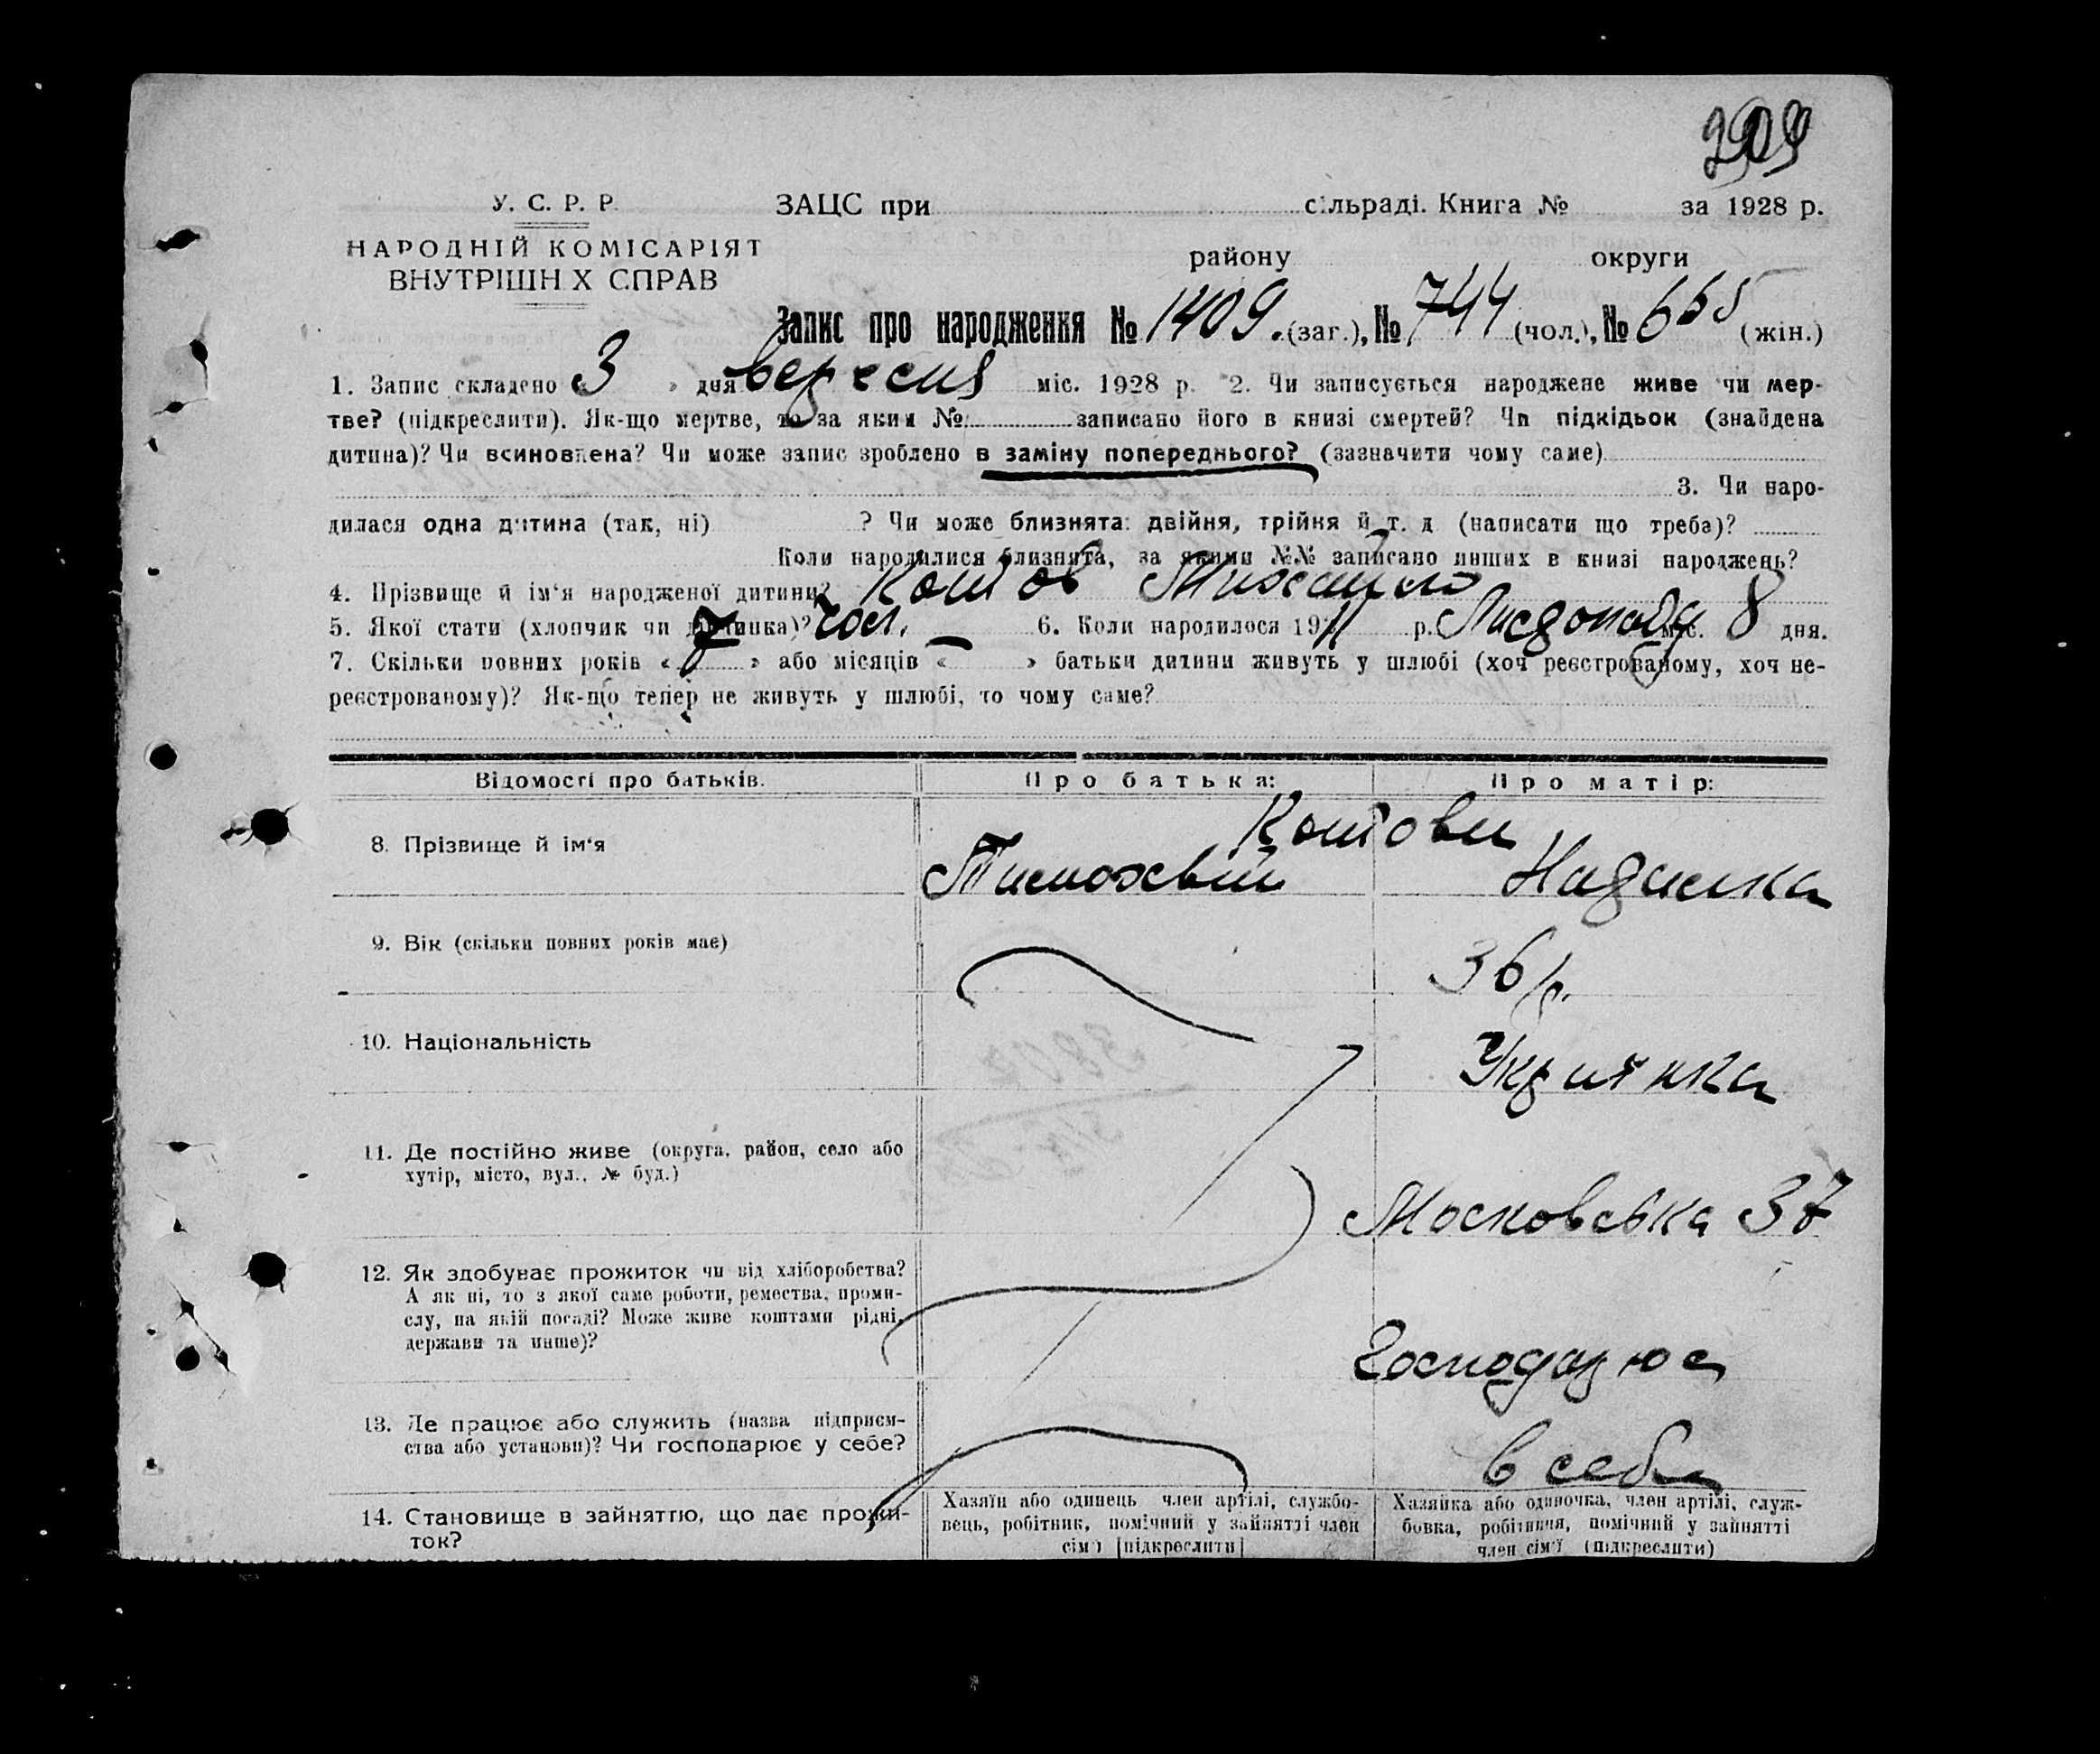 У. С. Р. Р.
НАРОДНІЙ КОМІСАРІЯТ
ВНУТРІШН Х СПРАВ
ЗАЦС при сільраді. Книга № за 1928 р.
району округи
Запис про народження № 1409. (заг.), № 744 (чол.), № 665 (жін.)
1. Запис складено « 3 » дня вересня міс. 1928 р. 2. Чи записується народжене живе чи мер-
тве? (підкреслити). Як-що мертве, то за яким № записано його в книзі смертей? Чи підкідьок (знайдена
дитина)? Чи всиновлена? Чи може запис зроблено в заміну попереднього? (зазначити чому саме)
3. Чи наро-
дилася одна дитина (так, ні) ? Чи може близнята: двійня, трійня й т. д. (написати що треба)?
Коли народилися близнята, за якими №№ записано инших в книзі народжень?
4. Прізвище й ім'я народженої дитини? Котов Михайло
5. Якої стати (хлопчик чи дівчинка)? чол. 6. Коли народилося 1911 р. Листопаду міс. 8 дня.
7. Скільки повних років « 7 » або місяців « — » батьки дитини живуть у шлюбі (хоч реєстрованому, хоч не-
реєстрованому)? Як-що тепер не живуть у шлюбі, то чому саме?
Відомості про батьків. Про батька: Про матір:
Котови
8. Прізвище й ім'я Тимохвій
9. Вік (скільки повних років має) 36 р.
10. Національність Українка
11. Де постійно живе (округа, район, село або
хутір, місто, вул., № буд.)
Московська 37
12. Як здобуває прожиток чи від хліборобства?
А як ні, то з якої саме роботи, ремества, проми-
слу, на якій посаді? Може живе коштами рідні,
держави та инше)?
Господарює
13. Де працює або служить (назва підприєм-
ства або установи)? Чи господарює у себе?
в себе
14. Становище в зайняттю, що дає прожи-
ток?
Хазяїн або одинець член артілі, службо-
вець, робітник, помічний у зайнятті член
сім'ї (підкреслити)
Хазяйка або одиночка, член артілі, служ-
бовка, робітниця, помічний у зайнятті
член сім'ї (підкреслити)